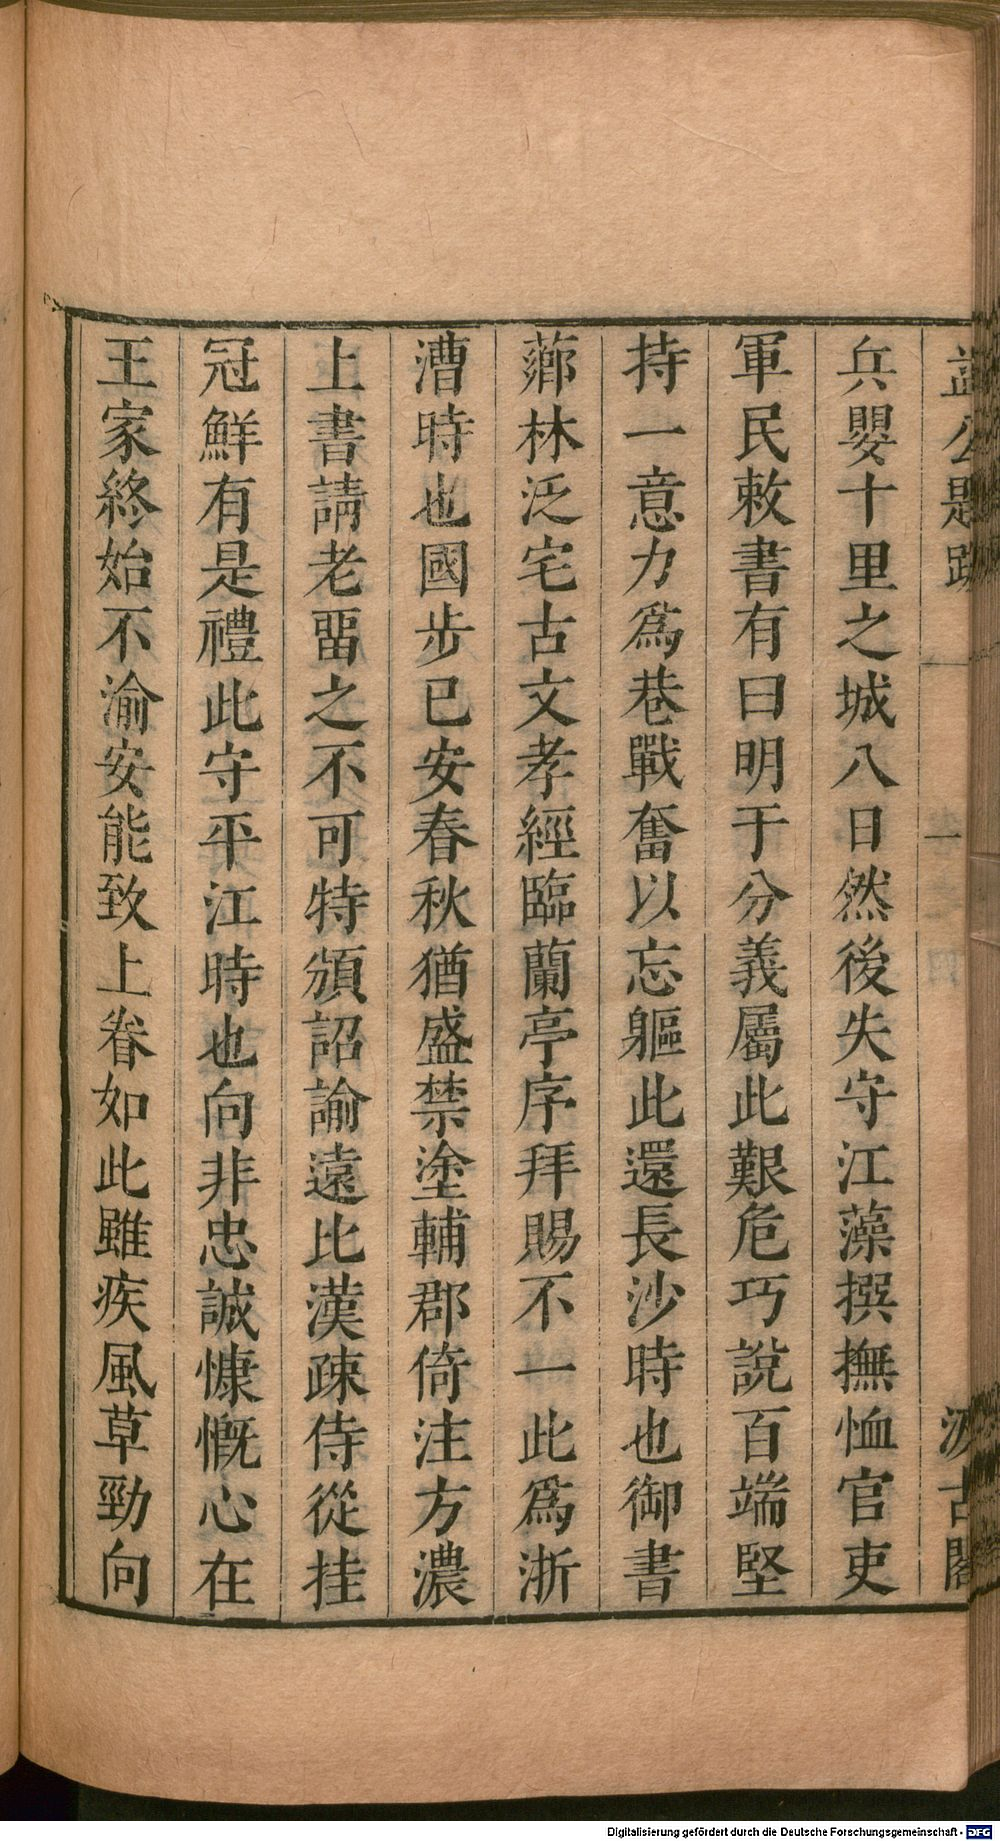 益公題跋 一 汲古閣
兵嬰十里之城八日然後失守江藻撰撫恤官吏
軍民敕書有曰明于分義屬此艱危巧說百端堅
持一意力爲巷戰奮以忘軀此還長沙時也御書
薌林泛宅古文孝經臨蘭亭序拜賜不一此爲浙
漕時也國步已安春秋猶盛禁塗輔郡倚注方濃
上書請老畱之不可特頒詔諭遠比漢疎侍從挂
冠鮮有是禮此守平江時也向非忠誠慷慨心在
王家終始不渝安能致上眷如此雖疾風草勁向
Digitalisierung gefördert durch die Deutsche Forschungsgemeinschaft - DFG